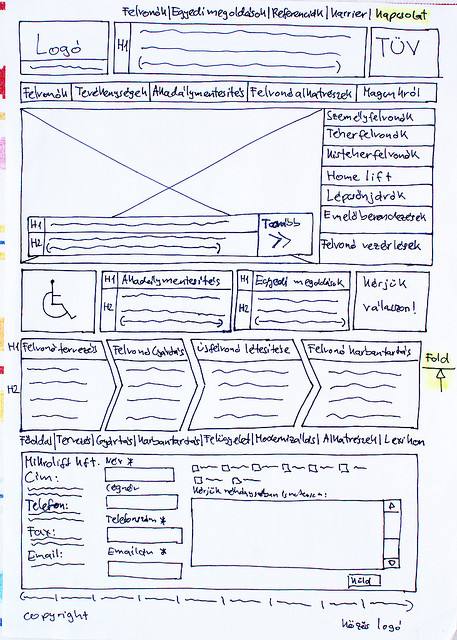 Felvonók|Egyedi megoldások|Referenciák|Karrier|Kapcsolat
Logó
H1
TÜV
Felvonók|Tevékenységek|Akadálymentesítés|Felvonóalkatrészek|Magunkról
Személyfelvonók
Teherfelvonók
Kisteherfelvonók
Home lift
Lépcsőnjárók
Emelőberendezések
Felvonó vezérlések
H1
H2
Tovább
H1 Akadálymentesítés
H2
H1 Egyedi megoldások
H2
Kérjük
válasszon!
H1
Felvonótervezés
Felvonó Gyártás
Újfelvonó létesítése
Felvonó karbantartás
H2
Föld
Főoldal|Tervezés|Gyártás|Karbantartás|Felügyelet|Modernizálás|Alkatrészek|Lexikon
Mikrolift kft.
Cím:
Telefon:
Fax:
Email:
Név *
Cégnév
Telefonszám *
Emailcím *
Kérjük néhány sorban
Küld
copyright
Közös logó